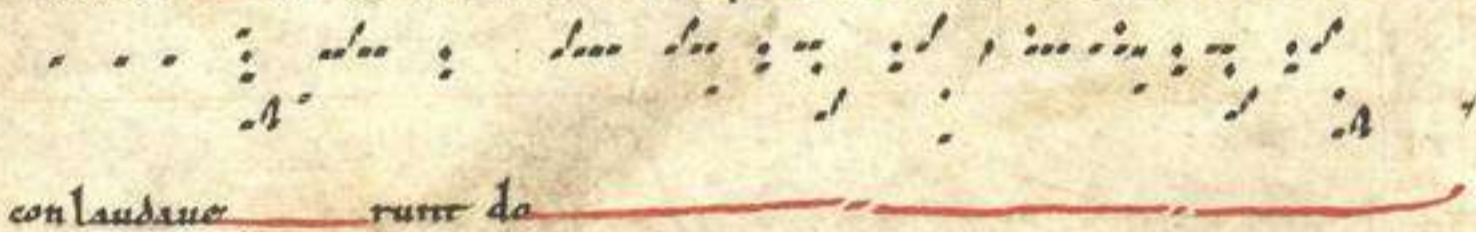 conlaudaue runt do